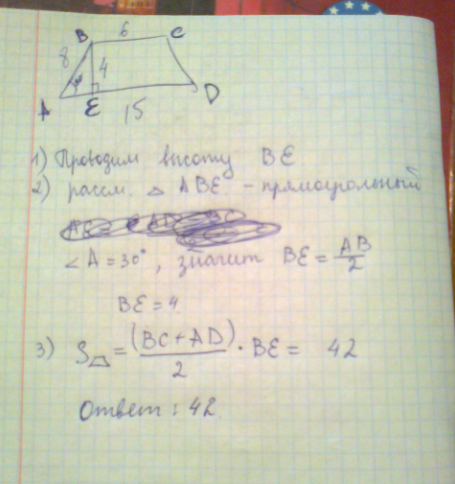 B 6 C
8 4
A E 15 D
1) Проводим высоту BE
2) рассм. △ ABE - прямоугольный
∠A = 30°, значит BE = AB/2
BE = 4
3) S = (BC + AD)/2 · BE = 42
Ответ: 42